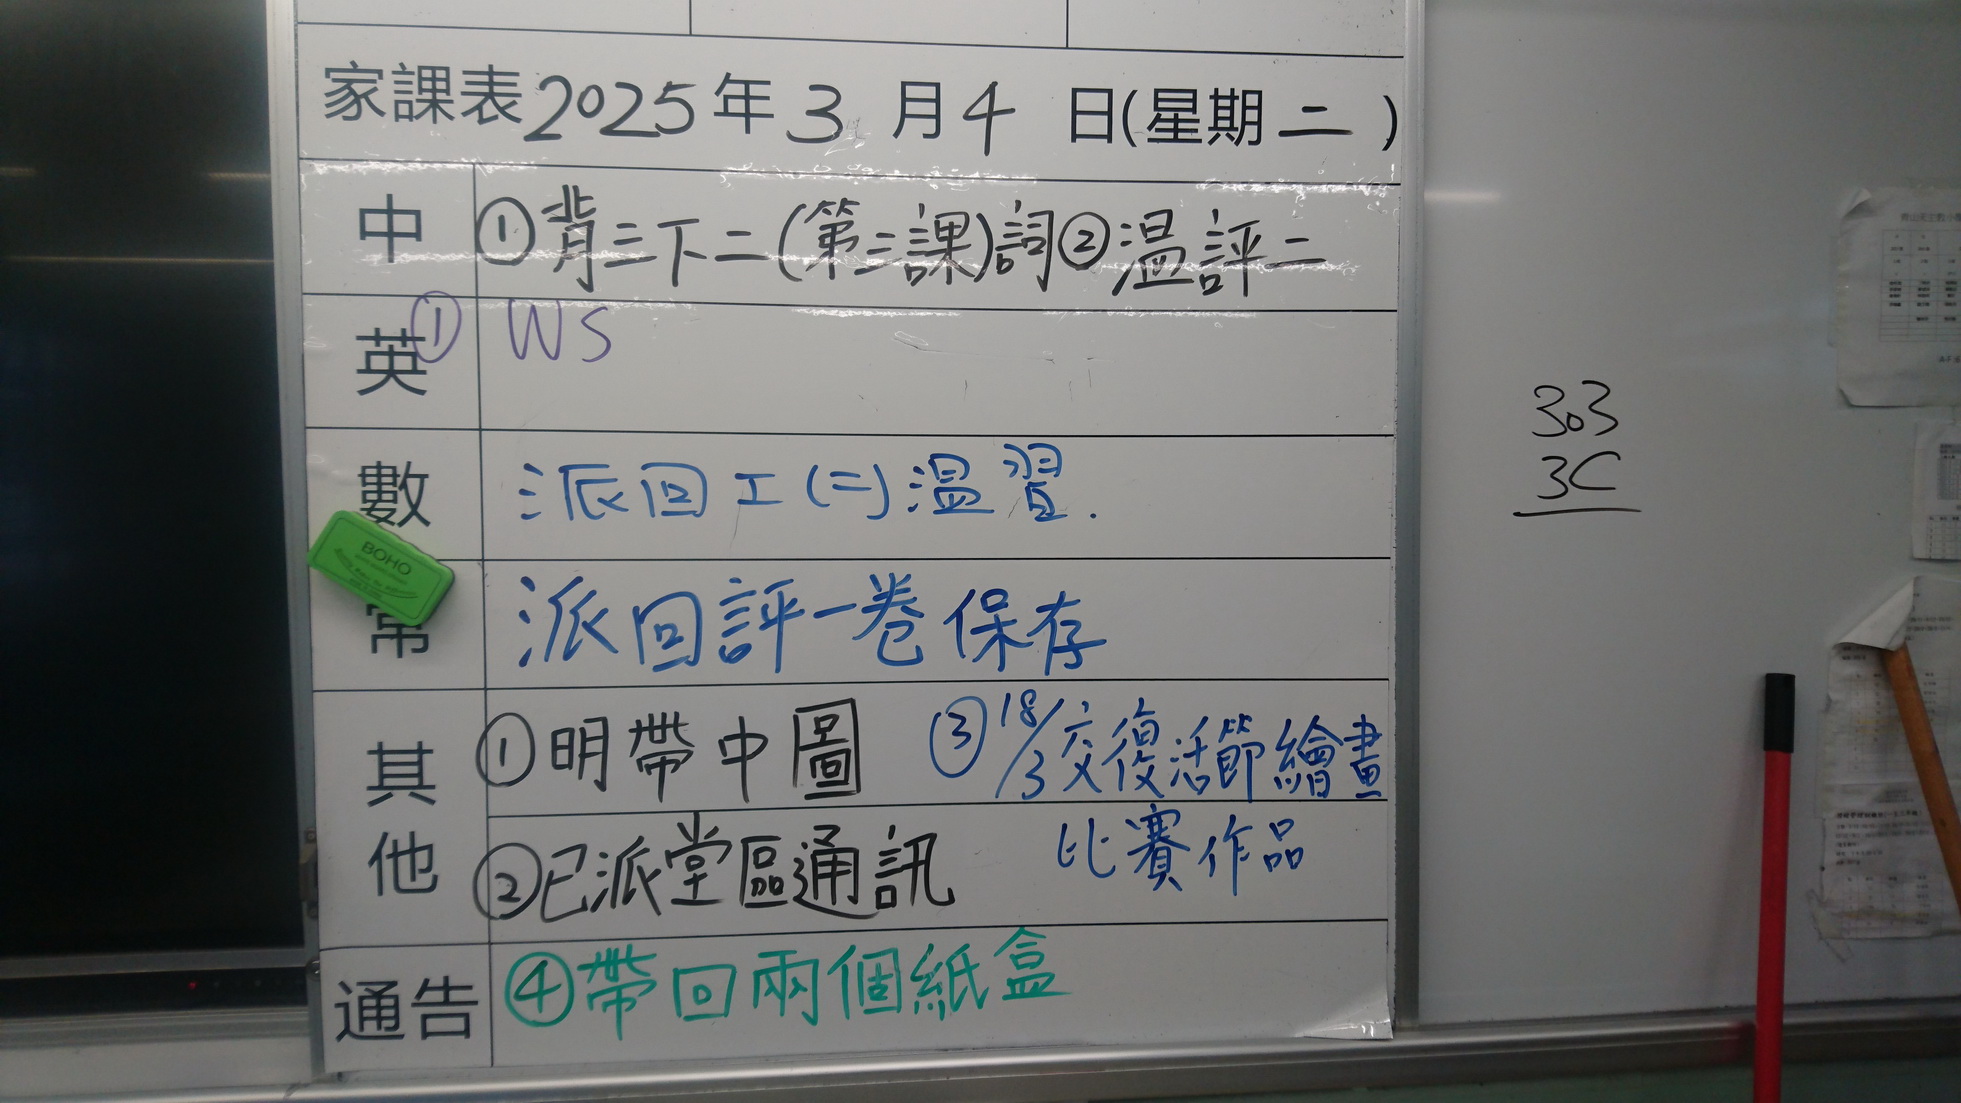 家課表2025年3月4日(星期二)
中 ①背三下二(第二課)詞②温評二
英① WS
數 派回工(二)溫習.
BOHO
常 派回評一卷保存
其他 ①明帶中圖 ③18/3交復活節繪畫
比賽作品
②已派堂區通訊
通告 ④帶回兩個紙盒
303
3C